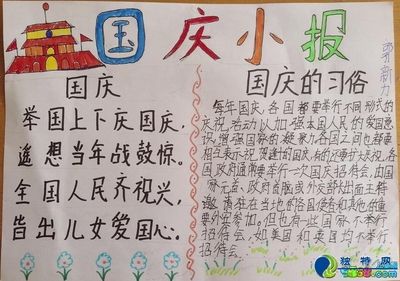 国庆小报
国庆
举国上下庆国庆,
遥想当年战鼓惊。
全国人民齐祝兴,
皆出儿女爱国心。
国庆的习俗
每年国庆,各国都要举行不同形式的
庆祝活动,以加强本国人民的爱国意
识,增强国家的凝聚力。各国之间也都要
相互表示祝贺。逢五逢十的国庆,有的还要扩大庆祝。各
国政府通常要举行一次国庆招待会,由国
家元首、政府首脑或外交部长出面主持,
邀请驻在当地的各国使者和其他的重
要外宾参加。但也有一些国家不举行
招待会,如美国和英国均不举行
招待会。
独特网